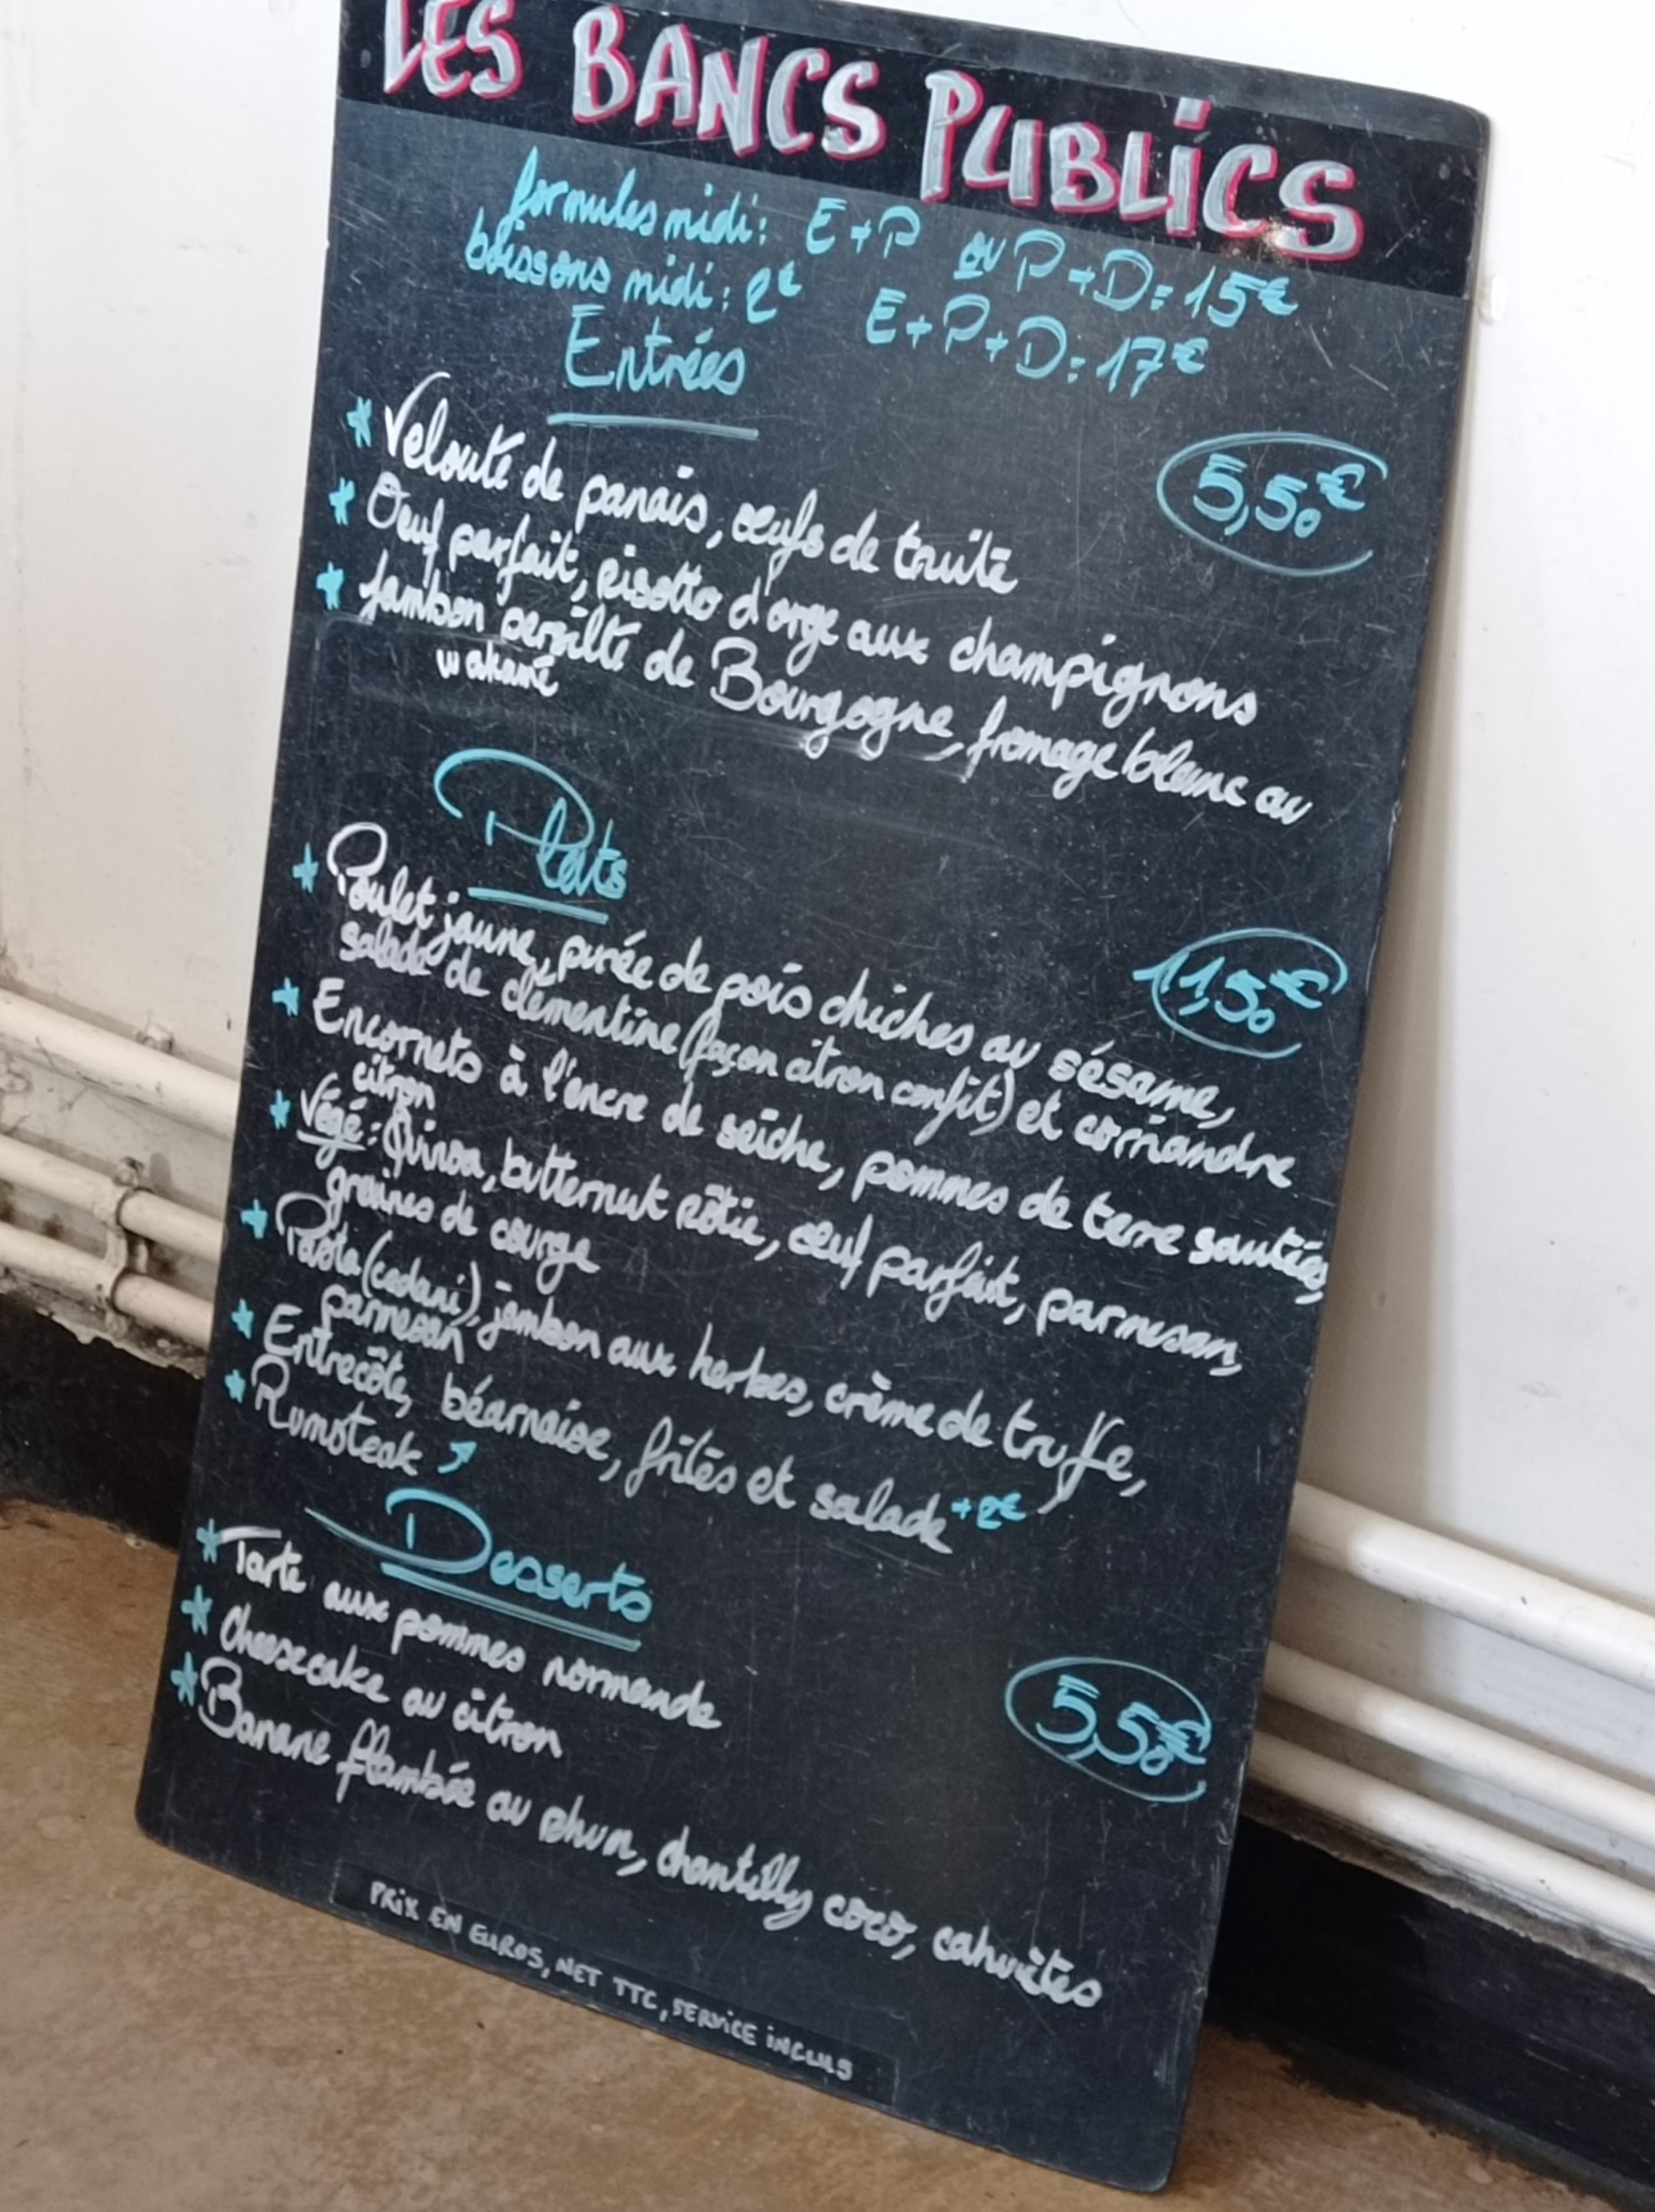 LES BANCS PUBLICS
formules midi: E+P ou P+D=15€
boissons midi: 2€ E+P+D=17€
Entrées
5,50€
* Velouté de panais, œufs de truite
* Oeuf parfait, risotto d'orge aux champignons
* Jambon persillé de Bourgogne, fromage blanc au
wakamé
Plats
11,50€
* Poulet jaune, purée de pois chiches au sésame,
salade de clémentine (façon citron confit) et coriandre
* Encornets à l'encre de seiche, pommes de terre sautées,
citron
* Végé: Quinoa, butternut rôtie, œuf parfait, parmesan,
graines de courge
* Pasta (cedani), jambon aux herbes, crème de truffe,
parmesan
* Entrecôte, béarnaise, frites et salade +2€
* Rumsteak ↗
Desserts
5,50€
* Tarte aux pommes normande
* Cheesecake au citron
* Banane flambée au rhum, chantilly coco, cahuètes
PRIX EN EUROS, NET TTC, SERVICE INCLUS